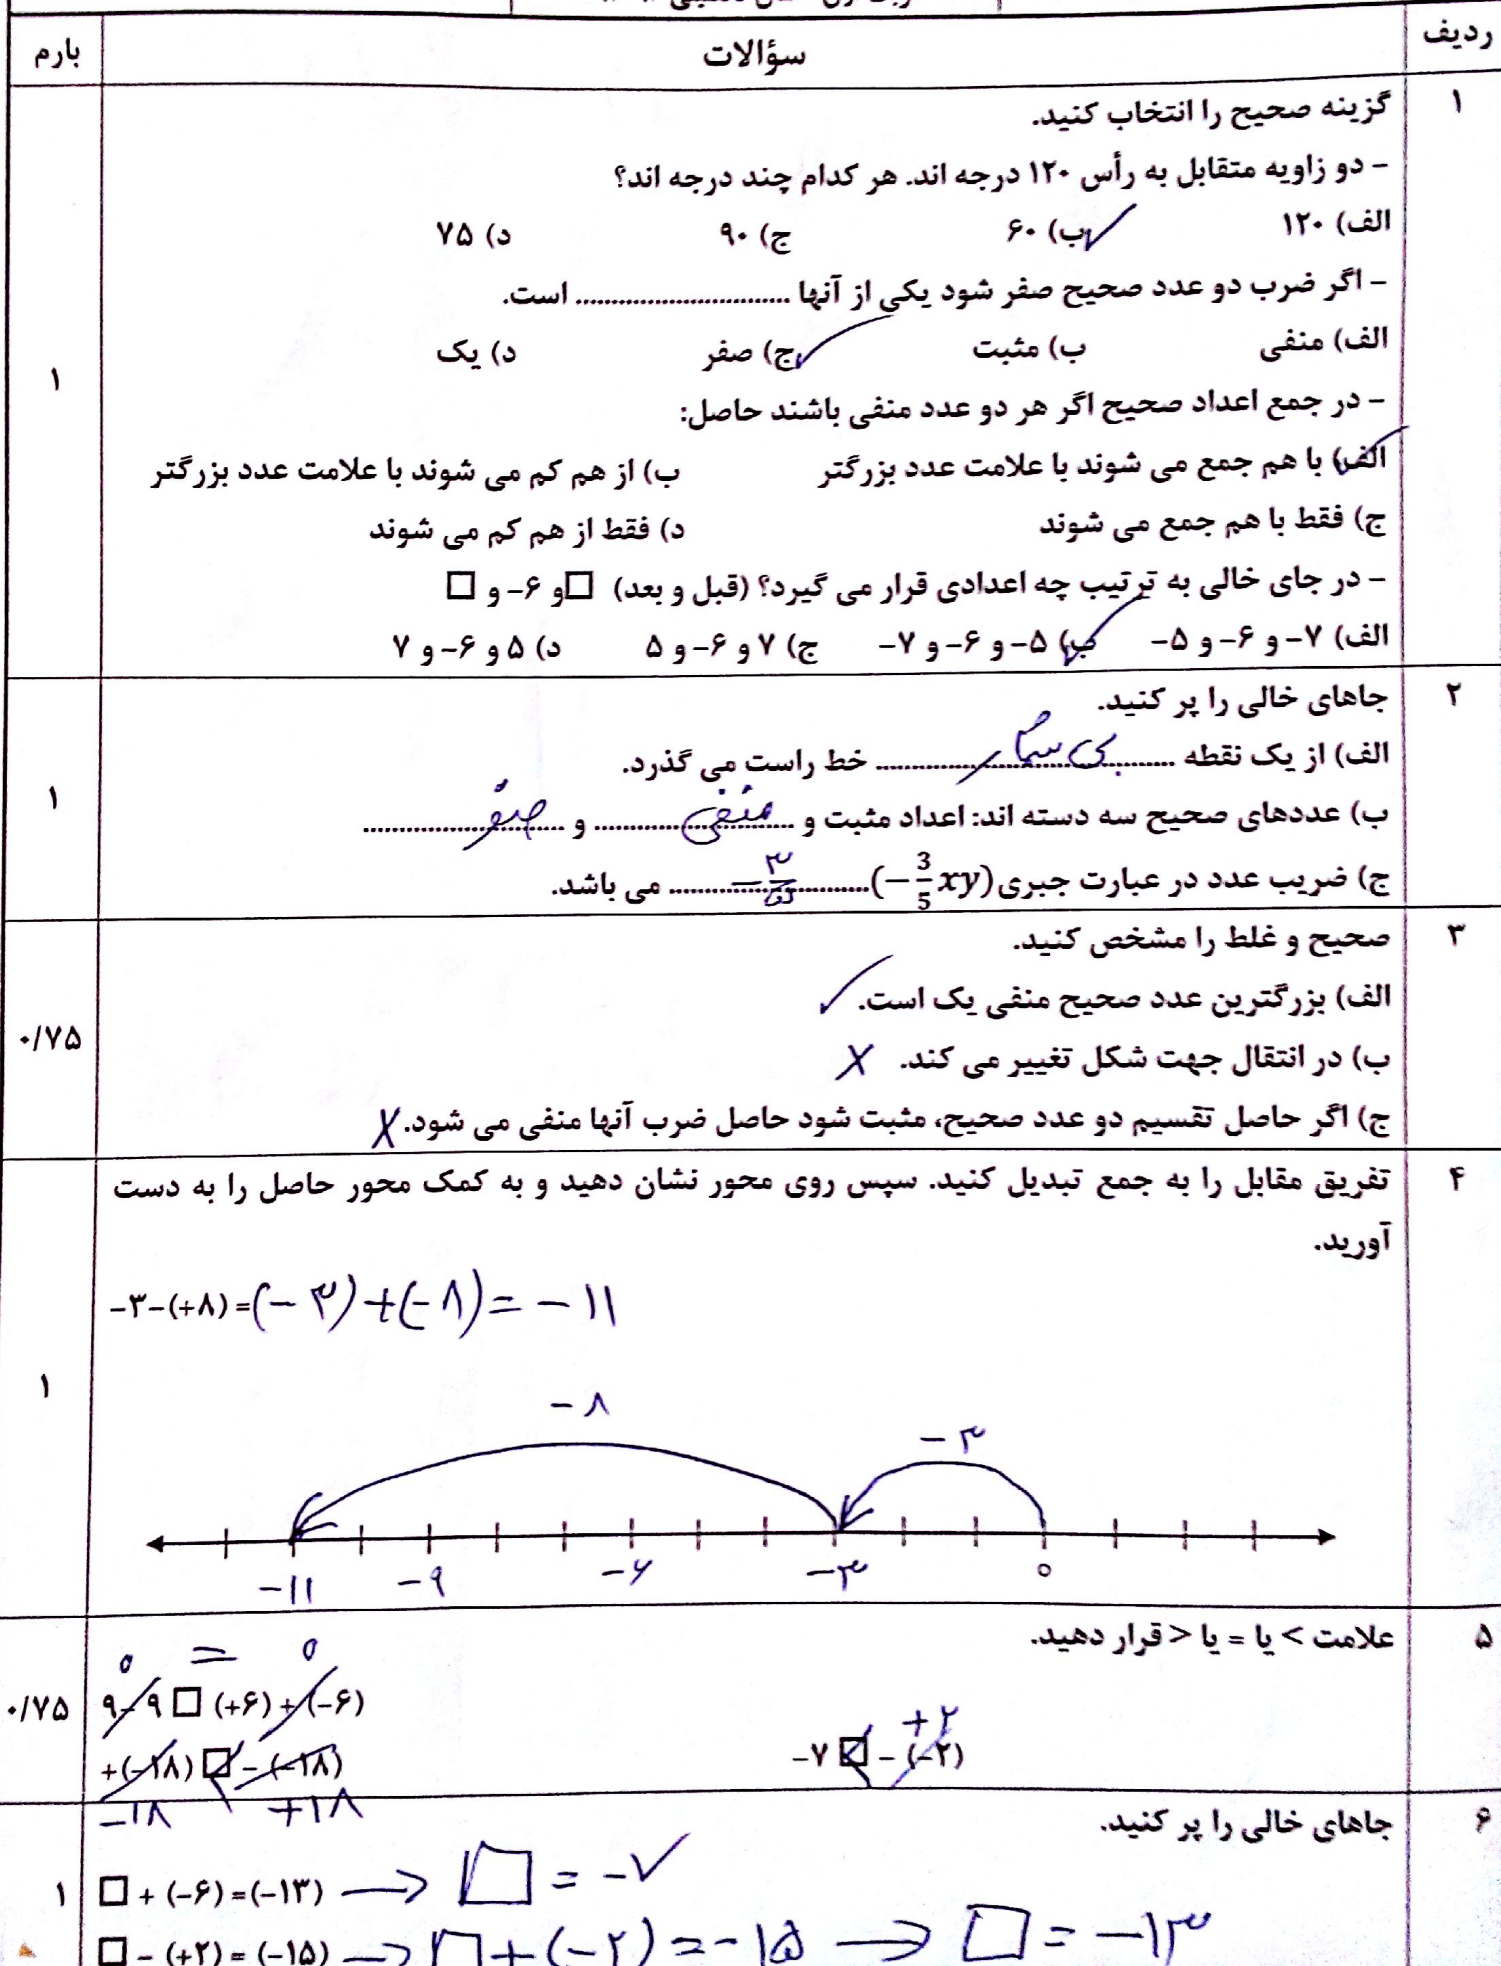 ردیف سؤالات بارم
۱ گزینه صحیح را انتخاب کنید.
- دو زاویه متقابل به رأس ۱۲۰ درجه اند. هر کدام چند درجه اند؟
الف) ۱۲۰ ب) ۶۰ ج) ۹۰ د) ۷۵
- اگر ضرب دو عدد صحیح صفر شود یکی از آنها .............................. است.
الف) منفی ب) مثبت ج) صفر د) یک
۱
- در جمع اعداد صحیح اگر هر دو عدد منفی باشند حاصل:
الف) با هم جمع می شوند با علامت عدد بزرگتر ب) از هم کم می شوند با علامت عدد بزرگتر
ج) فقط با هم جمع می شوند د) فقط از هم کم می شوند
- در جای خالی به ترتیب چه اعدادی قرار می گیرد؟ (قبل و بعد) □و ۶- و □
الف) ۷- و ۶- و ۵- ب) ۵- و ۶- و ۷- ج) ۷ و ۶- و ۵ د) ۵ و ۶- و ۷
۲ جاهای خالی را پر کنید.
الف) از یک نقطه بی شمار خط راست می گذرد.
۱
ب) عددهای صحیح سه دسته اند: اعداد مثبت و منفی و صفر
ج) ضریب عدد در عبارت جبری (-3/5 xy) -۳/۵ می باشد.
۳ صحیح و غلط را مشخص کنید.
الف) بزرگترین عدد صحیح منفی یک است. ✓
۰/۷۵
ب) در انتقال جهت شکل تغییر می کند. X
ج) اگر حاصل تقسیم دو عدد صحیح، مثبت شود حاصل ضرب آنها منفی می شود. X
۴ تفریق مقابل را به جمع تبدیل کنید. سپس روی محور نشان دهید و به کمک محور حاصل را به دست
آورید.
-۳-(+۸) =(-۳)+(-۸)= -۱۱
۱
-۸ -۳
-۱۱ -۹ -۶ -۳ ۰
۵ علامت > یا = یا < قرار دهید.
۰ = ۰
۰/۷۵
۹-۹ □ (+۶)+(-۶)
+۲
+(-۱۸) □ -(-۱۸) -۷ □ -(-۲)
-۱۸ +۱۸
۶ جاهای خالی را پر کنید.
۱
□ + (-۶) =(-۱۳) → □ = -۷
□ - (+۲) = (-۱۵) → □+(-۲)=-۱۵ → □ = -۱۳